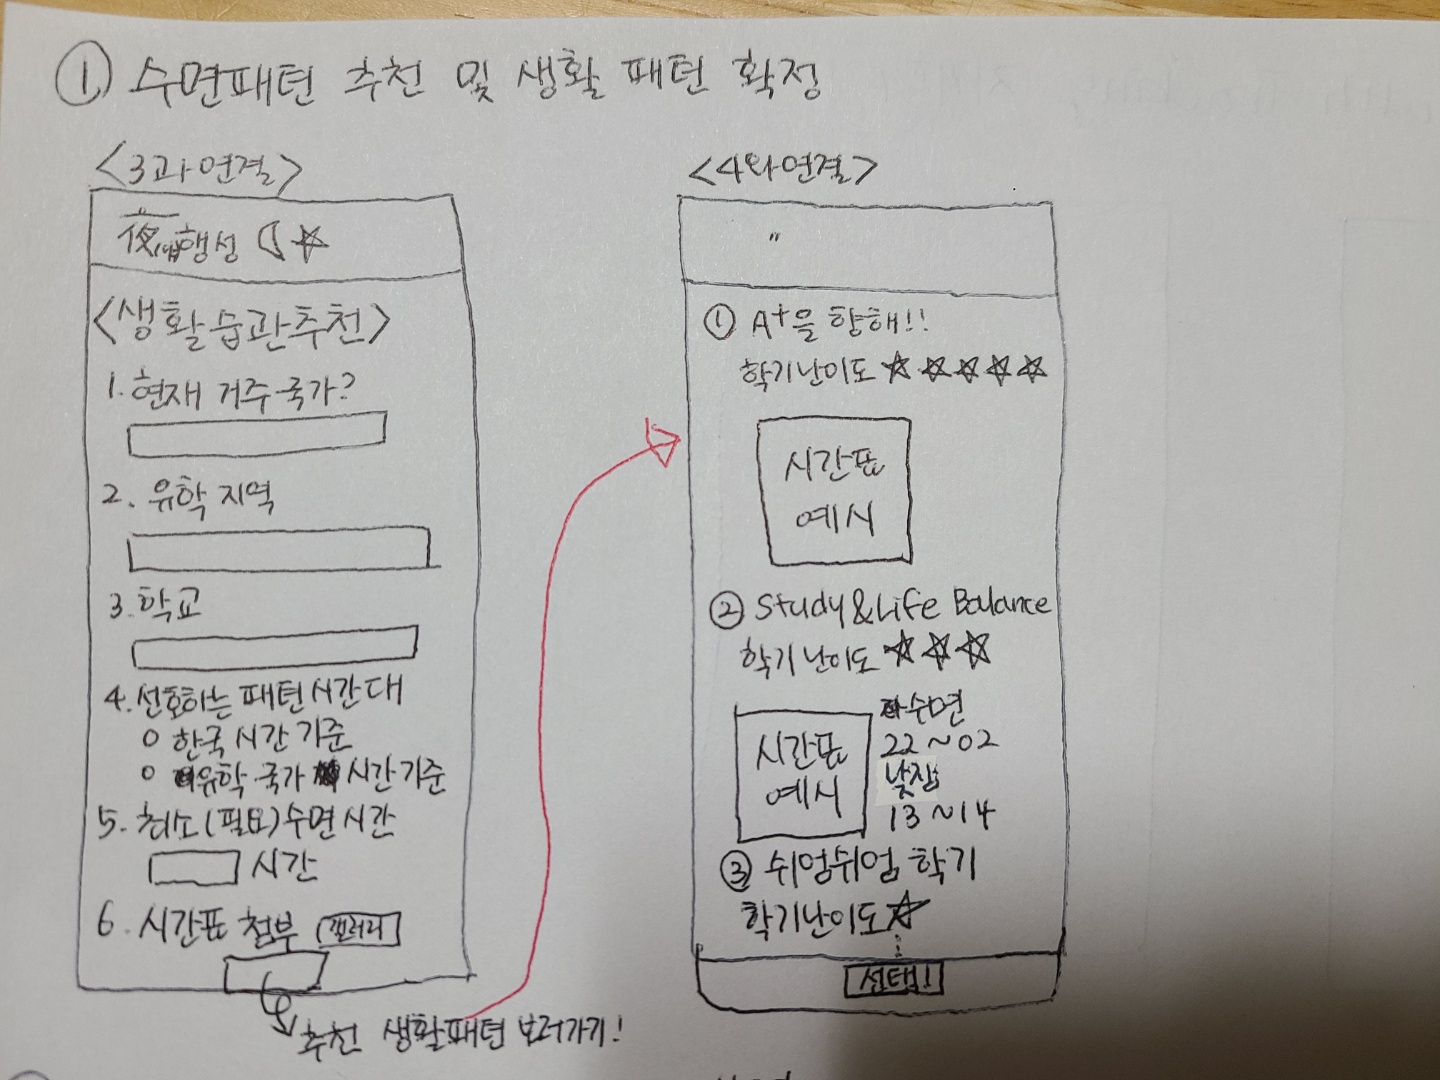 ① 수면패턴 추천 및 생활 패턴 확정
<3과 연결>
夜행성
<생활습관추천>
1. 현재 거주 국가?
2. 유학 지역
3. 학교
4. 선호하는 패턴 시간대
○ 한국 시간 기준
○ 유학 국가 시간 기준
5. 최소(필요)수면 시간
시간
6. 시간표 첨부 갤러리
추천 생활패턴 보러가기!
<4와 연결>
"
① A+을 향해!!
학기난이도 ☆☆☆☆☆
시간표
예시
② Study&Life Balance
학기난이도 ☆☆☆
시간표
예시
수면
22~02
낮잠
13~14
③ 쉬엄쉬엄 학기
학기난이도 ☆
선택!